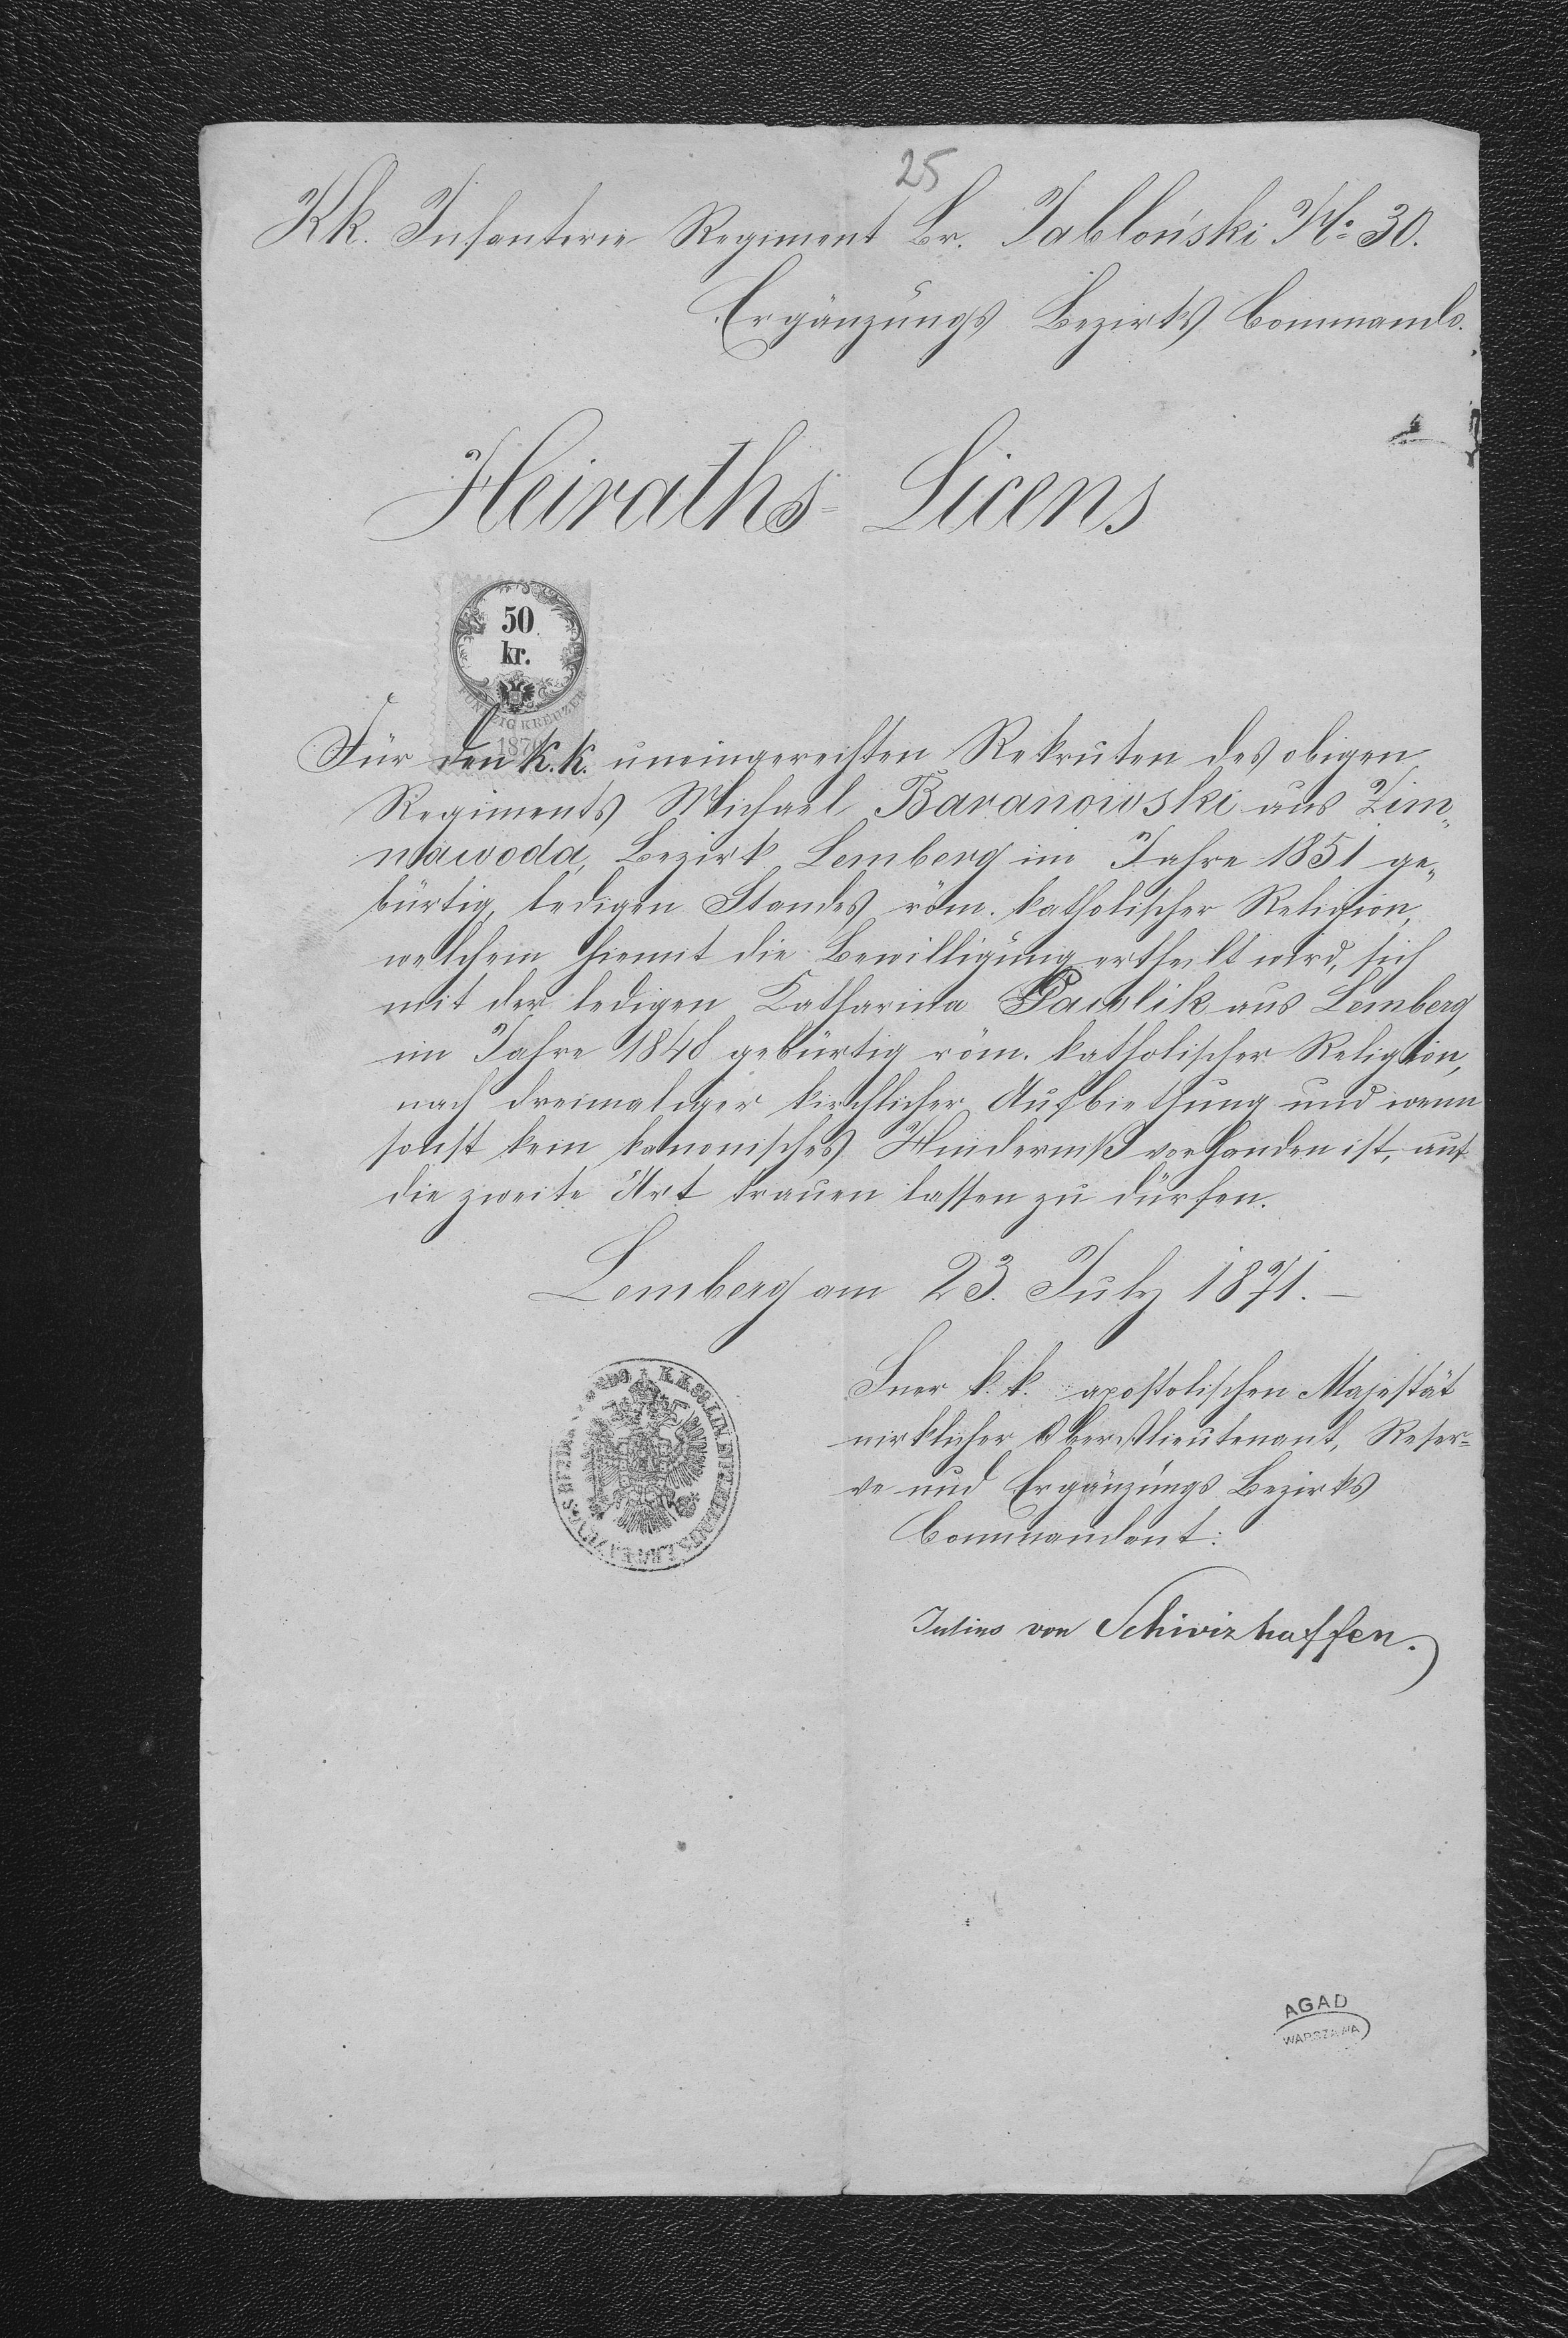 25
Kk. Infanterie Regiment Br. Jabloński No 30.
Ergänzungs Bezirks Commando.
Heiraths= Licens
50
kr.
FÜNFZIG KREUZER
187
Für den k.k. uneingereihten Rekruten des obigen
Regiments Michael Baranowski aus Zim„
nawoda, Bezirk Lemberg im Jahre 1851 ge„
bürtig, ledigen Standes röm. katholischer Religion,
welchem hiemit die Bewilligung ertheilt wird, sich
mit der ledigen Katharina Pawlik aus Lemberg
im Jahre 1848 gebürtig röm. katholischer Religion,
nach dreimaliger kirchlicher Aufbiethung und wenn
sonst kein kanonisches Hinderniß vorhanden ist, auf
die zweite Art trauen lassen zu dürfen.
Lemberg am 23. July 1871.—
Sner k.k. apostolischen Majestät
wirklicher Oberstlieutenant, Reser=
ve und Ergänzungs Bezirks
Commandant:
Julius von Schiwizhoffen.
AGAD
WARSZAWA